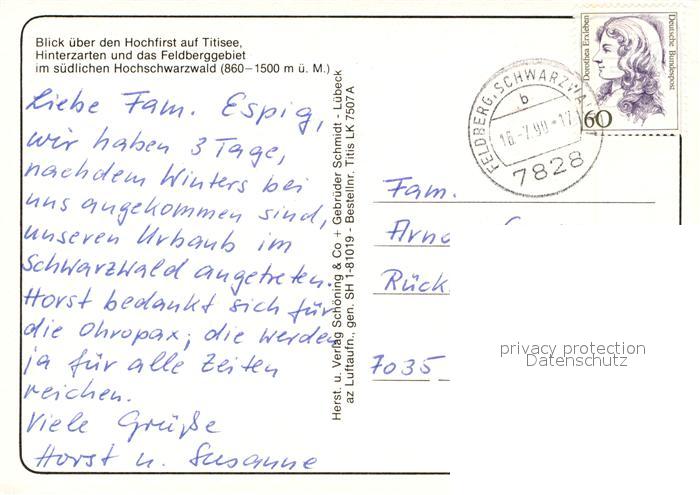 Blick über den Hochfirst auf Titisee,
Hinterzarten und das Feldberggebiet
im südlichen Hochschwarzwald (860–1500 m ü. M.)
Liebe Fam. Espig,
wir haben 3 Tage,
nachdem Winters bei
uns angekommen sind,
unseren Urlaub im
Schwarzwald angetreten.
Horst bedankt sich für
die Ohropax; die werden
ja für alle Zeiten
reichen.
Viele Grüße
Horst u. Susanne
Herst. u. Verlag Schöning & Co + Gebrüder Schmidt - Lübeck
az Luftaufn., gen. SH 1-81019 - Bestellnr. Titis LK 7507A
Dorothea Erxleben
Deutsche Bundespost
60
FELDBERG, SCHWARZWA
b
-7.90-17
7828
Fam.
Arno
Rück
7035
privacy protection
Datenschutz